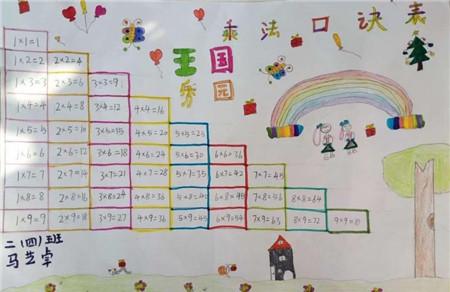 乘法口诀表
王国
乐园
1×1=1
1×2=2 2×2=4
1×3=3 2×3=6 3×3=9
1×4=4 2×4=8 3×4=12 4×4=16
1×5=5 2×5=10 3×5=15 4×5=20 5×5=25
1×6=6 2×6=12 3×6=18 4×6=24 5×6=30 6×6=36
1×7=7 2×7=14 3×7=21 4×7=28 5×7=35 6×7=42 7×7=
1×8=8 2×8=16 3×8=24 4×8=32 5×8=40 6×8=48 7×8=56 8×8=64
1×9=9 2×9=18 3×9=27 4×9=36 5×9=45 6×9=54 7×9=63 8×9=72 9×9=81
二(四)班
马艺卓